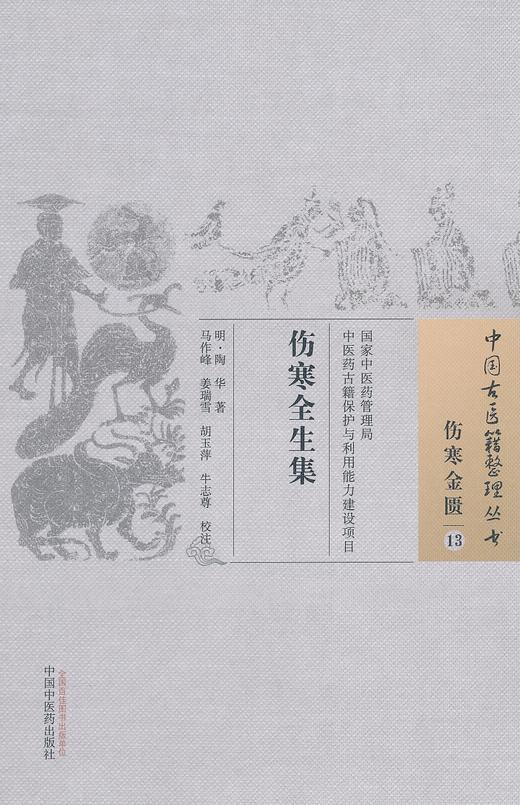 中国古医籍整理丛书
伤寒金匮
13
国家中医药管理局
中医药古籍保护与利用能力建设项目
伤寒全生集
明·陶 华 著
马作峰 姜瑞雪 胡玉萍 牛志尊 校注
全国百佳图书出版单位
中国中医药出版社